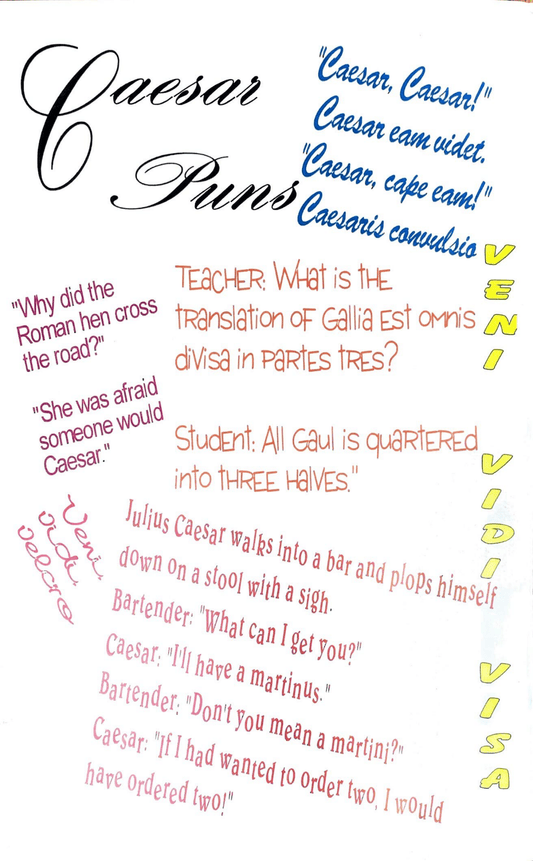 Caesar
Puns
"Caesar, Caesar!"
Caesar eam videt.
"Caesar, cape eam!"
Caesaris convulsio
"Why did the
Roman hen cross
the road?"
"She was afraid
someone would
Caesar."
TEACHER: What is the
translation of Gallia Est omnis
divisa in partes tres?
Student: All Gaul is quartered
into three halves."
Veni,
vidi,
velcro
Julius Caesar walks into a bar and plops himself
down on a stool with a sigh.
Bartender: "What can I get you?"
Caesar: "I'll have a martinus."
Bartender: "Don't you mean a martini?"
Caesar: "If I had wanted to order two, I would
have ordered two!"
VENI
VIDI
VISA